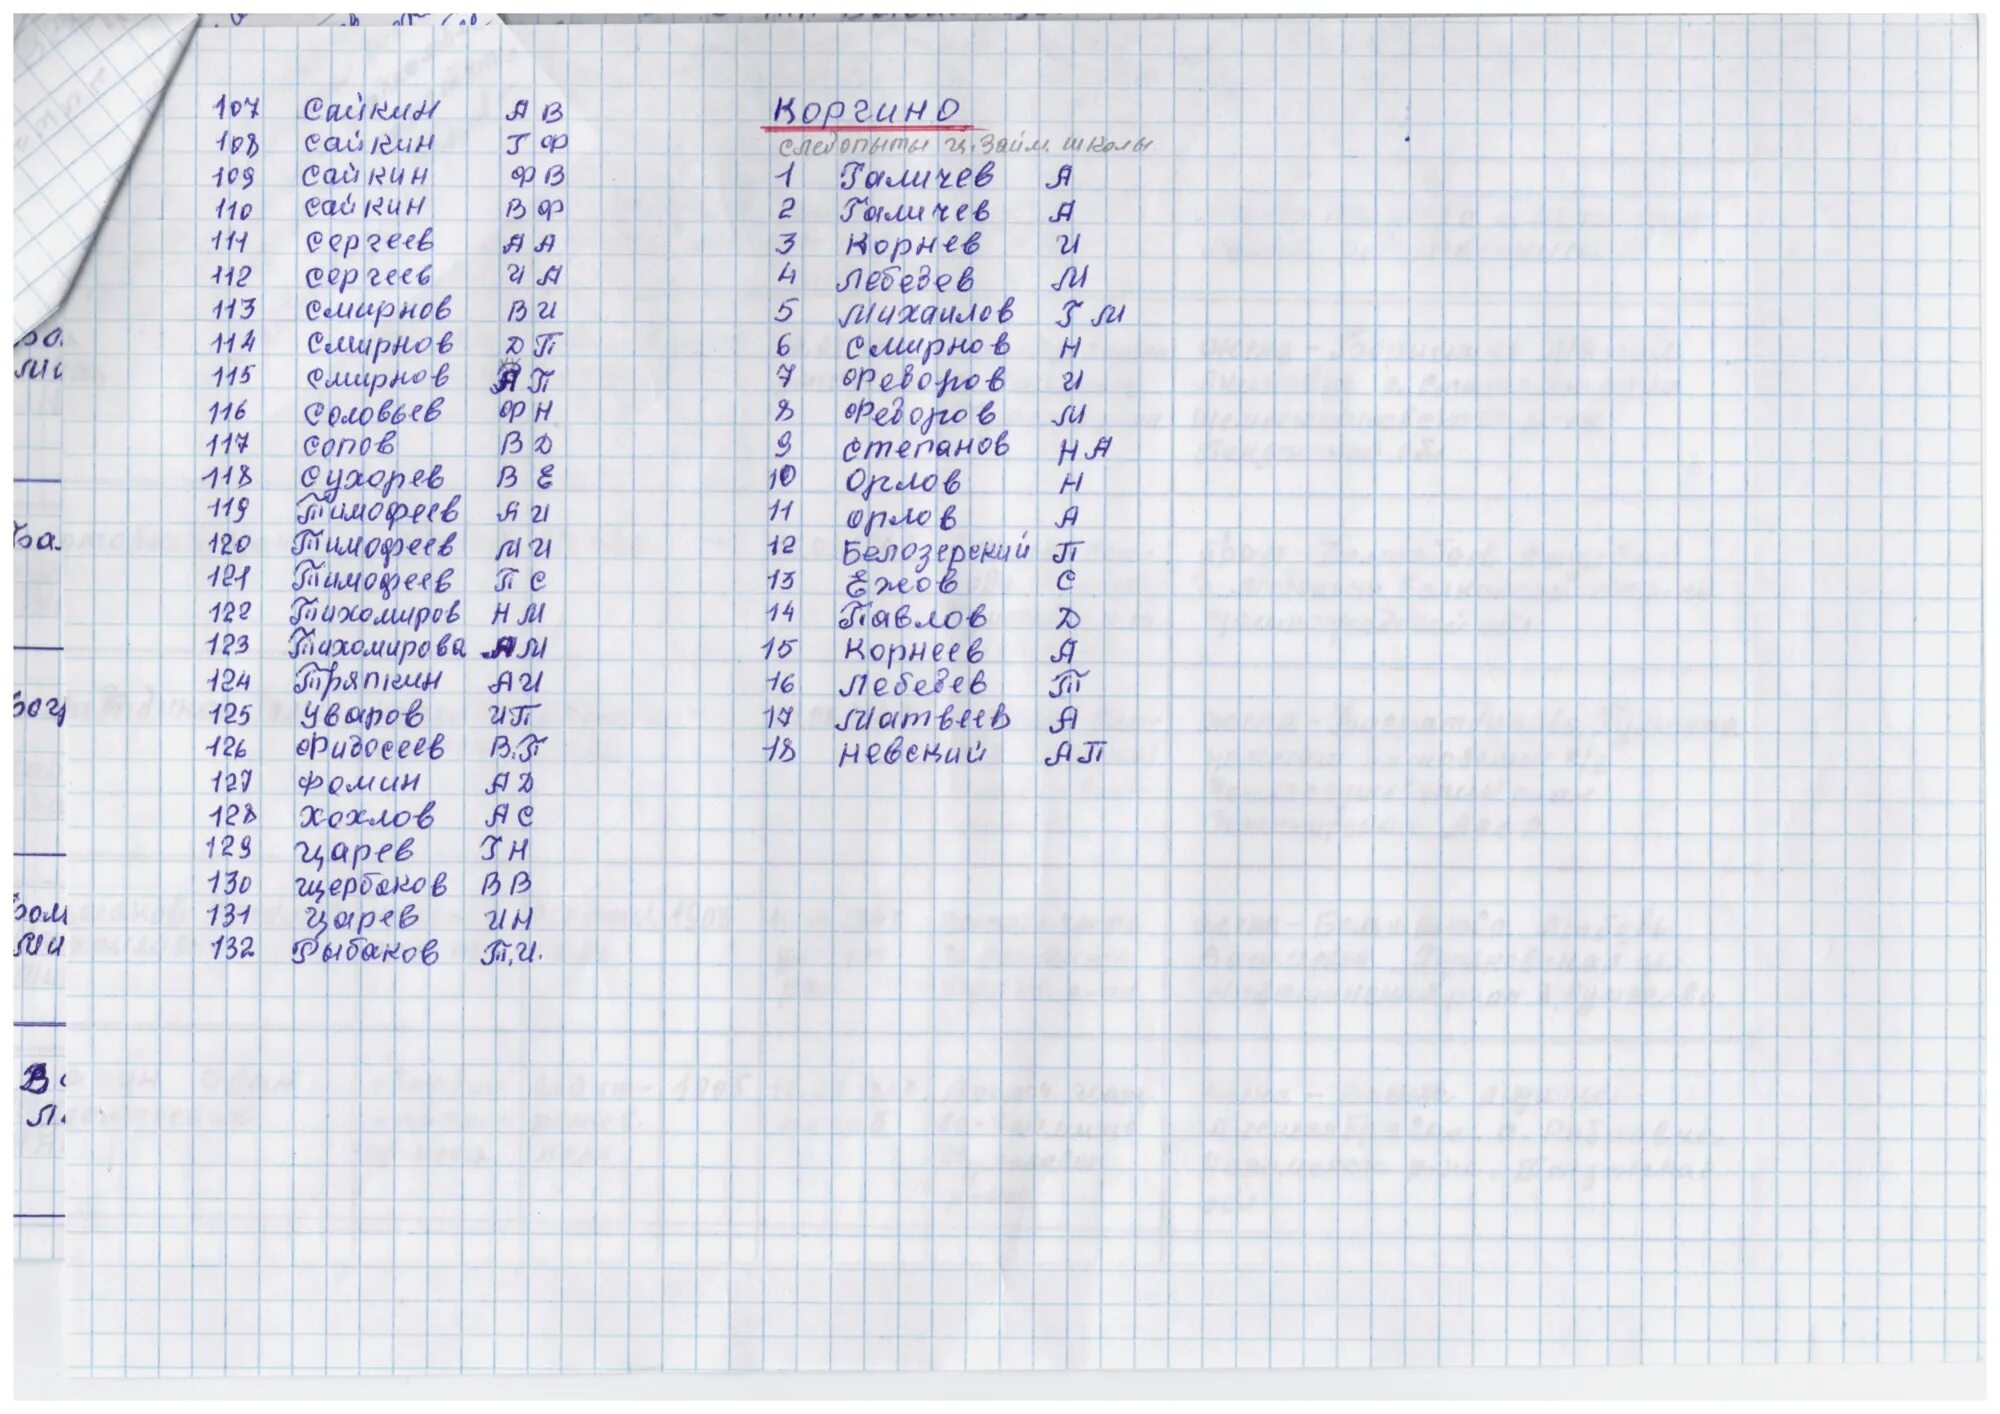 107 Сайкин А В
108 Сайкин Г Ф
109 Сайкин Ф В
110 Сайкин В Ф
111 Сергеев А А
112 Сергеев И А
113 Смирнов В И
114 Смирнов Д П
115 Смирнов А П
116 Соловьев Ф Н
117 Сопов В Д
118 Сухорев В Е
119 Тимофеев А И
120 Тимофеев М И
121 Тимофеев П С
122 Тихомиров Н М
123 Тихомирова А М
124 Тряпкин А И
125 Уваров И П
126 Фидосеев В.П
127 Фомин А Д
128 Хохлов А С
129 Царев Г Н
130 Щербаков В В
131 Царев И Н
132 Рыбаков П.И.
Коргино
следопыты ц.Займ. школы
1 Галичев А
2 Галичев А
3 Корнев И
4 Лебедев М
5 Михаилов Г М
6 Смирнов Н
7 Федоров И
8 Федоров М
9 Степанов Н А
10 Орлов Н
11 Орлов А
12 Белозерский П
13 Ежов С
14 Павлов Д
15 Корнеев А
16 Лебедев Т
17 Матвеев А
18 Невский А П